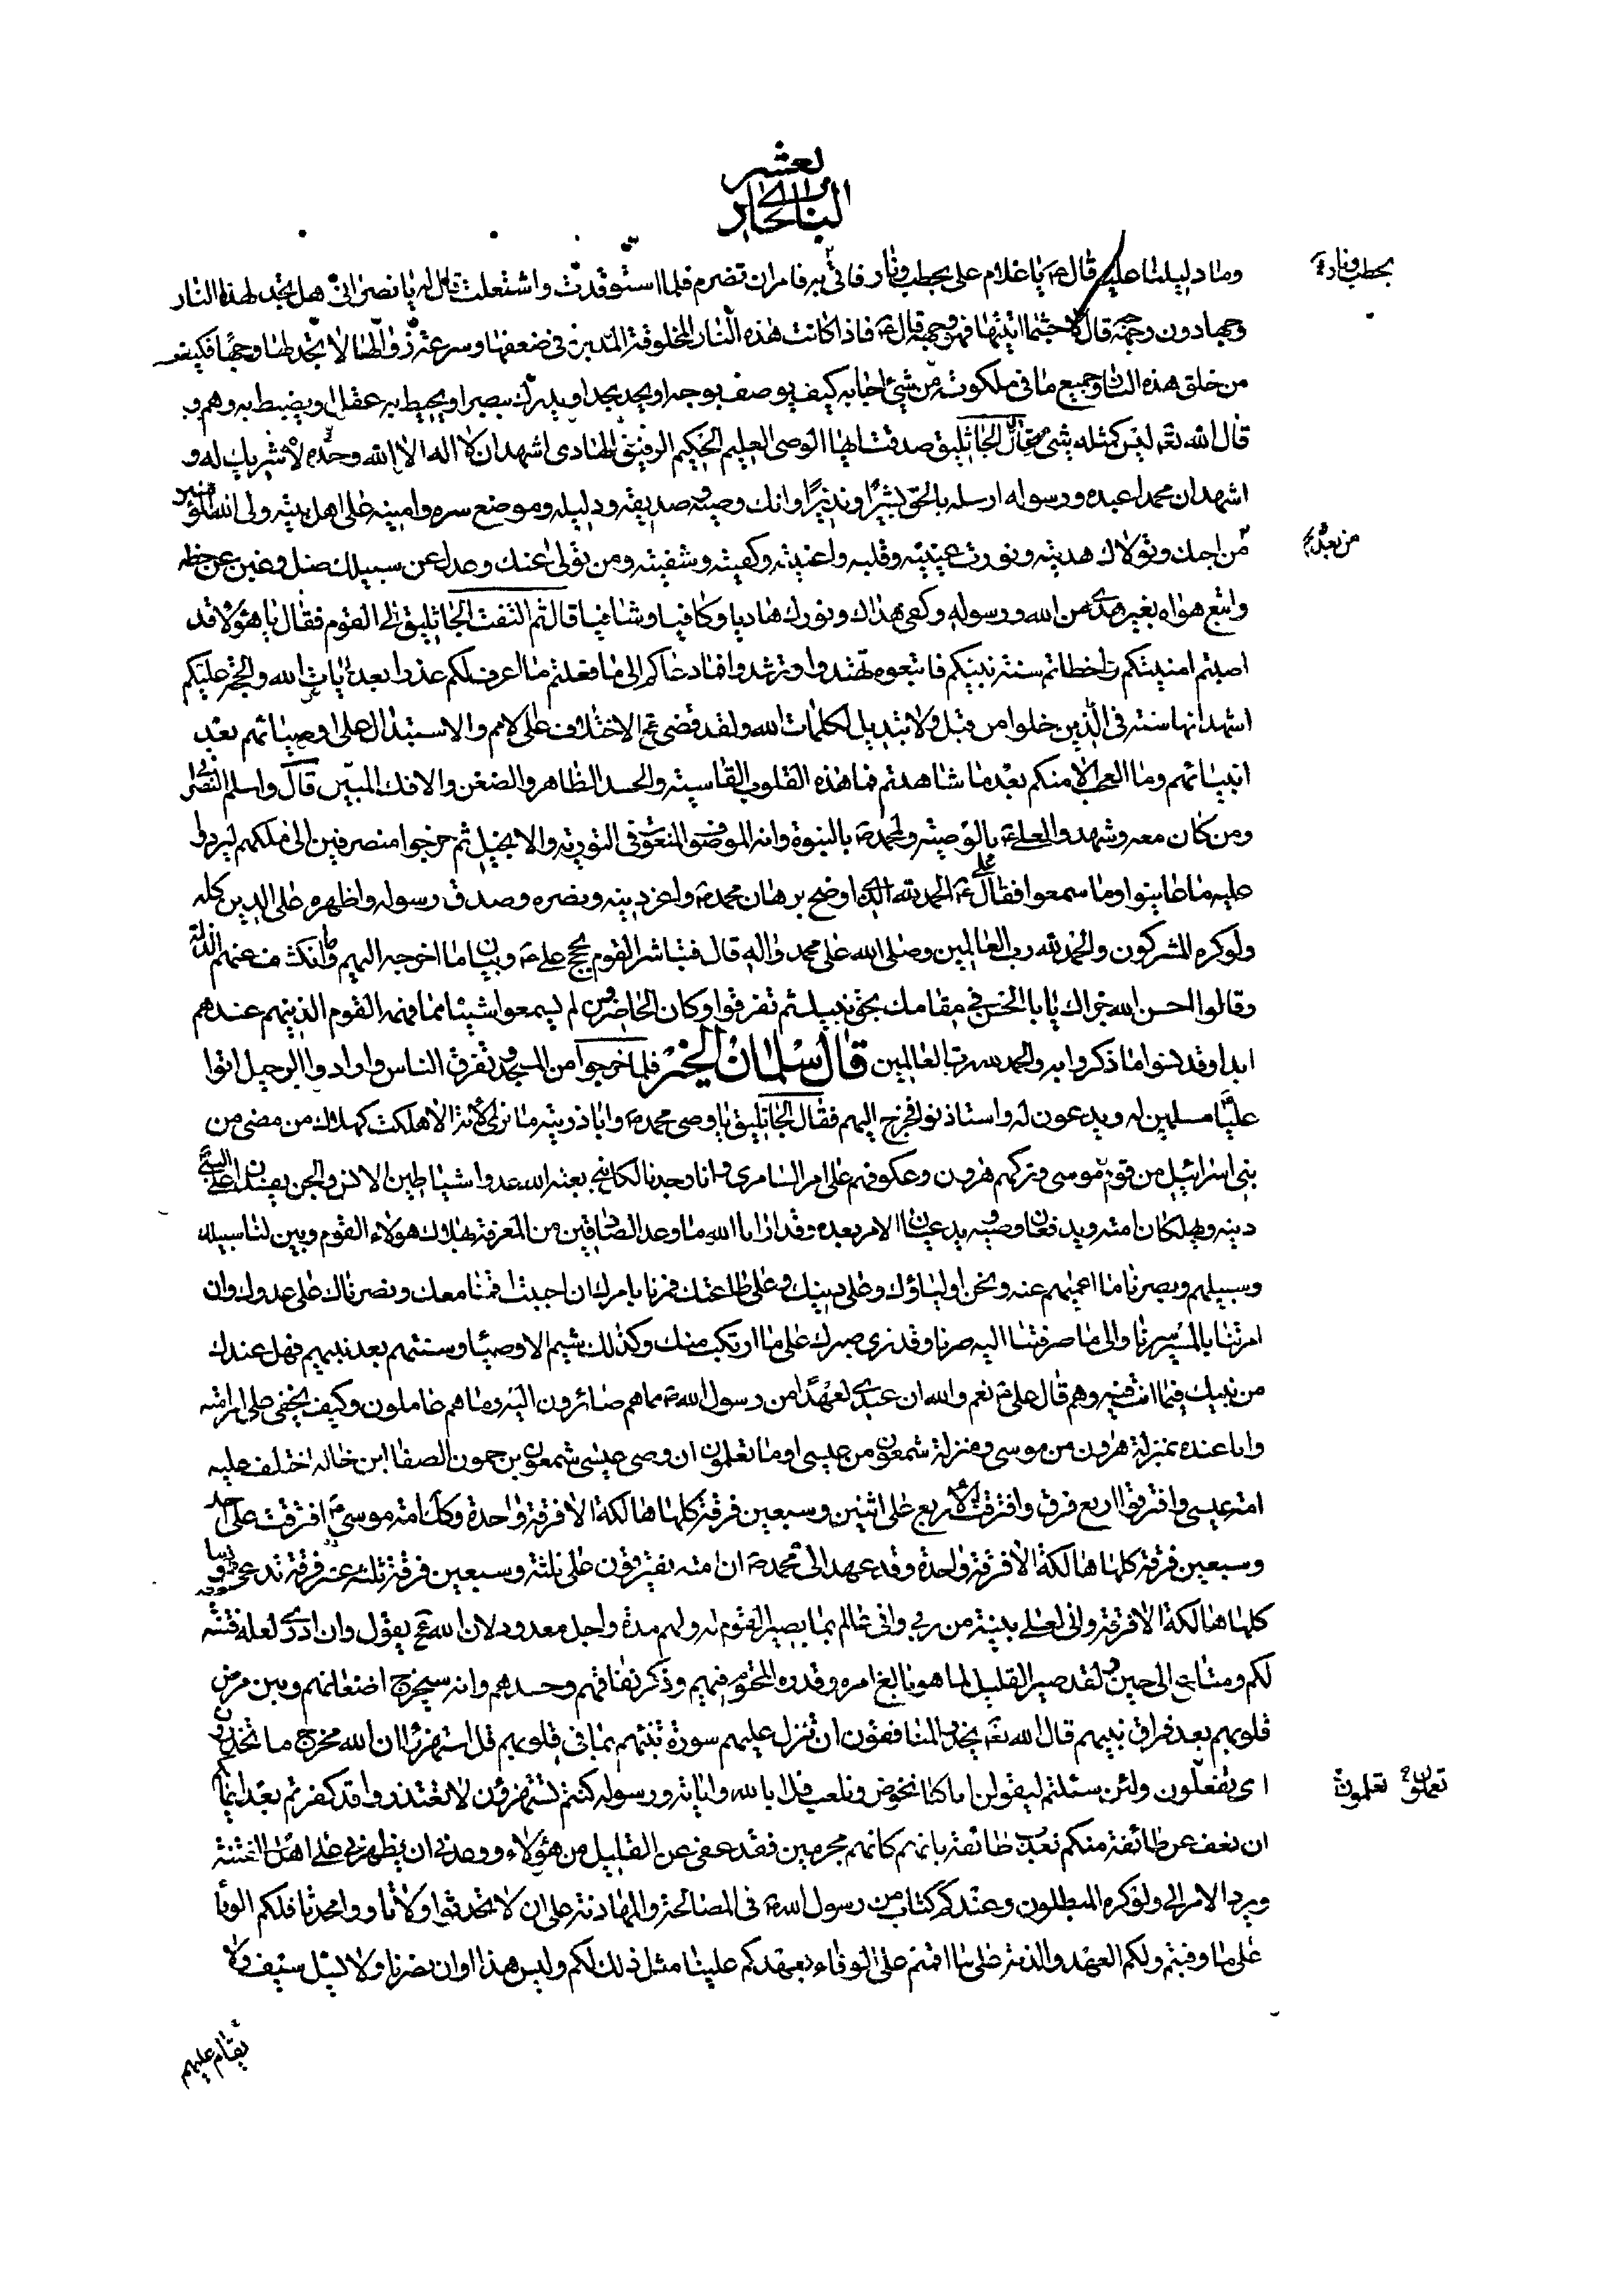 وما دليلنا عليه قال ع يا غلام علي بحطب ونار فاتي به فامر ان تضرم فلما استوقدت واشتعلت قال له يا نصراني هل تجد لهذه النار
وجها دون وجه قال لا حيثما اتيتها فهو وجه قال ع فاذا كانت هذه النار المخلوقة المدبرة في ضعفها وسرعة زوالها لا تجد لها وجها فكيف
من خلق هذه النار وجميع ما في ملكوته من شيء اجابه كيف يوصف بوجه او يحد بحد او يدرك ببصر او يحيط به عقل او يضبط به وهم و
قال الله تع ليس كمثله شيء فقال الجاثليق صدقت ايها الوصي العليم الحكيم الرفيق الهادي اشهد ان لا اله الا الله وحده لا شريك له و
اشهد ان محمدا عبده ورسوله ارسله بالحق بشيرا ونذيرا وانك وصيه وصديقه ودليله وموضع سره وامينه على اهل بيته وولي المؤمنين
من احبك وتولاك هديته ونورت عينيه وقلبه واغنيته وكفيته وشفيته ومن تولى عنك وعدل عن سبيلك ضل وغبن عن حظه
واتبع هواه بغير هدى من الله ورسوله وكفى هداك ونورك هاديا وكافيا وشافيا قال ثم التفت الجاثليق الى القوم فقال يا هؤلاء قد
اصبتم امنيتكم واخطاتم سنة نبيكم فاتبعوه تهتدوا وترشدوا فما دعاكم الى ما فعلتم ما اعرف لكم عذرا بعد ايات الله والحجة عليكم
اشهد انها سنة في الذين خلوا من قبل ولا تبديل لكلمات الله ولقد قضى عج الاختلاف على الامم والاستبدال على اوصيائهم بعد
انبيائهم وما العجب الا منكم بعد ما شاهدتم فما هذه القلوب القاسية والحسد الظاهر والضغن والافك المبين قال واسلم النصراني
ومن كان معه وشهدوا لعلي ع بالوصية ولمحمد ص بالنبوة وانه الموصوف المنعوت في التورية والانجيل ثم خرجوا منصرفين الى ملكهم ليردوا
عليه ما عاينوا وما سمعوا فقال علي ع الحمد لله الذي اوضح برهان محمد ص واعز دينه ونصره وصدق رسوله واظهره على الدين كله
ولو كره المشركون والحمد لله رب العالمين وصلى الله على محمد واله قال فتباشر القوم بحجج علي ع وبيان ما اخرجه اليهم وانكشفت عنهم الذلة
وقالوا احسن الله جزاك يا ابا الحسن في مقامك بحق نبيك ثم تفرقوا وكان الحاضرون لم يسمعوا شيئا مما فهمه القوم الذينهم عندهم
ابدا وقد نسوا ما ذكروا به والحمد لله رب العالمين قال سلمان الخير فلما خرجوا من المسجد وتفرق الناس وارادوا الرحيل اتوا
عليا مسلمين له ويدعون له واستاذنوا فخرج اليهم فقال الجاثليق يا وصي محمد ص وابا ذريته ما نرى الامة الا هلكت كهلاك من مضى من
بني اسرائيل من قوم موسى وتركهم هرون وعكوفهم على امر السامري وانا وجدنا لكل نبي بعثه الله عدوا شياطين الانس والجن يفسدان على النبي
دينه ويهلكان امته ويدفعان وصيه ويدعيان الامر بعده وقد ارانا الله ما وعد الصادقين من المعرفة بهلاك هولاء القوم وبين لنا سبيلك
وسبيلهم وبصرنا ما اعميهم عنه ونحن اولياؤك وعلى دينك وعلى طاعتك فمرنا بامرك ان احببت اقمنا معك ونصرناك على عدوك وان
امرتنا بالمسير سرنا والى ما صرفتنا اليه صرنا وقد نرى صبرك على ما ارتكب منك وكذلك شيم الاوصيا وسنتهم بعد نبيهم فهل عندك
من نبيك فيما انت فيه وهم قال علي ع نعم والله ان عندي لعهدا من رسول الله ص مما هم صائرون اليه وما هم عاملون وكيف يخفى علي امر امته
وانا عنده بمنزلة هرون من موسى ومنزلة شمعون من عيسى اوما تعلمون ان وصي عيسى شمعون بن حمون الصفا ابن خاله اختلف عليه
امة عيسى وافترقوا اربع فرق وافترقت الاربع على اثنين وسبعين فرقة كلها هالكة الا فرقة واحدة وكك امة موسى ع افترقت على احد
وسبعين فرقة كلها هالكة الا فرقة واحدة وقد عهد الي محمد ص ان امته يفترقون على ثلثة وسبعين فرقة ثلثة عشر فرقة تدعي
كلها هالكة الا فرقة واني لعلى بينة من ربي واني عالم بما يصير القوم له ولهم مدة واجل معدود لان الله عج يقول وان ادري لعله فتنة
لكم ومتاع الى حين ولقد صبر القليل لما هو بالغ امره وقدره المحتوم فيهم وذكر نفاقهم وحسدهم وانه سيخرج اضغانهم ويبين مرض
قلوبهم بعد فراق نبيهم قال الله تع يحذر المنافقون ان تنزل عليهم سورة تنبئهم بما في قلوبهم قل استهزؤا ان الله مخرج ما تحذرون
اي تفعلون ولئن سئلتم ليقولن انما كنا نخوض ونلعب قل ابالله واياته ورسوله كنتم تستهزؤن لا تعتذروا قد كفرتم بعد ايمانكم
ان نعف عن طائفة منكم نعذب طائفة بانهم كانوا مجرمين فقد عفى عن القليل من هؤلاء ووعدني ان يظهرني على اهل الفتنة
ويرد الامر الي ولو كره المبطلون وعندكم كتاب من رسول الله ص في المصالحة والمهادنة على ان لا تحدثوا ولا تاووا محدثا فلكم الوفا
على ما وفيتم ولكم العهد والذمة على ما اقمتم على الوفاء بعهدكم علينا مثل ذلك لكم وليس هذا اوان نصرنا ولا يسل سيف ولا
يقام عليهم
بحطب ونار
من بعده
تعملون تعلمون